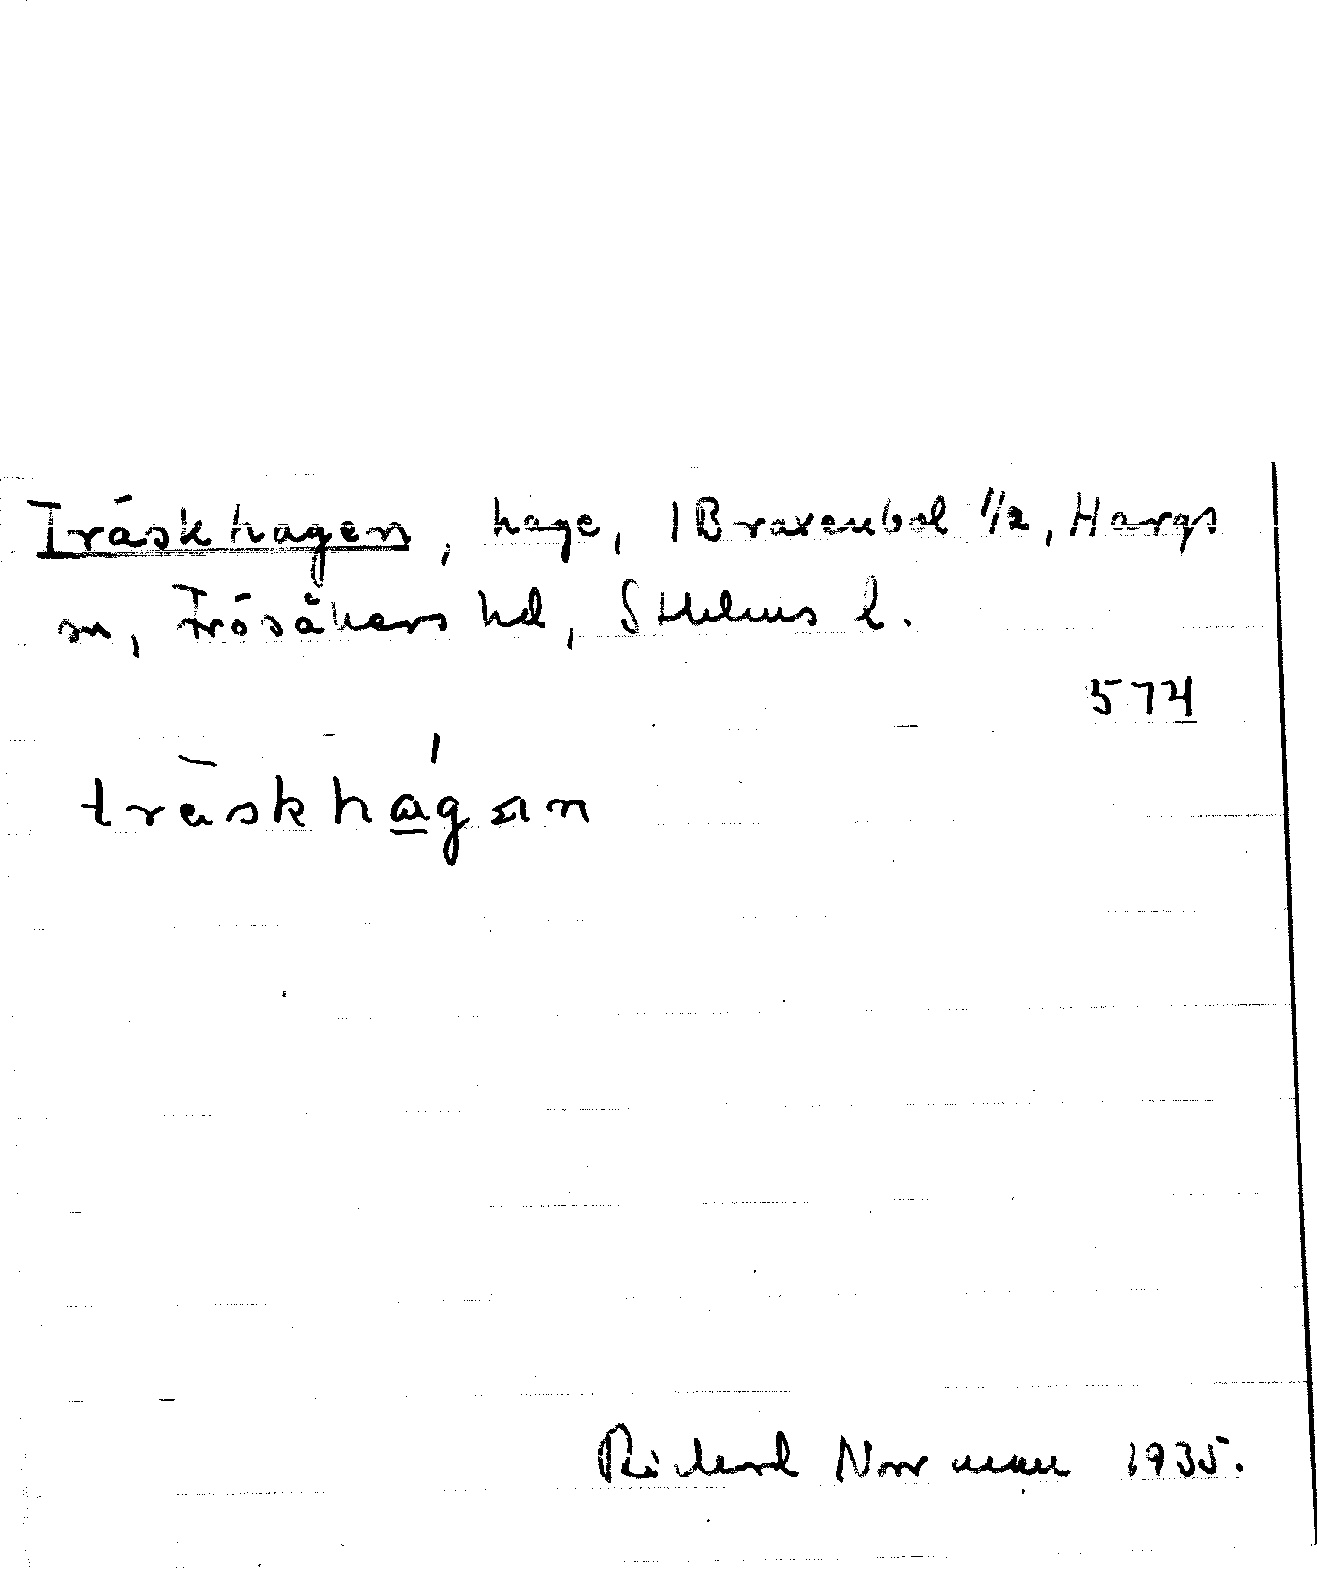 Träskhagen, hage, 1 Braxenbol 1/2, Hargs
sn, Frösåkers hd, Sthlms l.
574
träskhagan
Richard Norrman 1935.